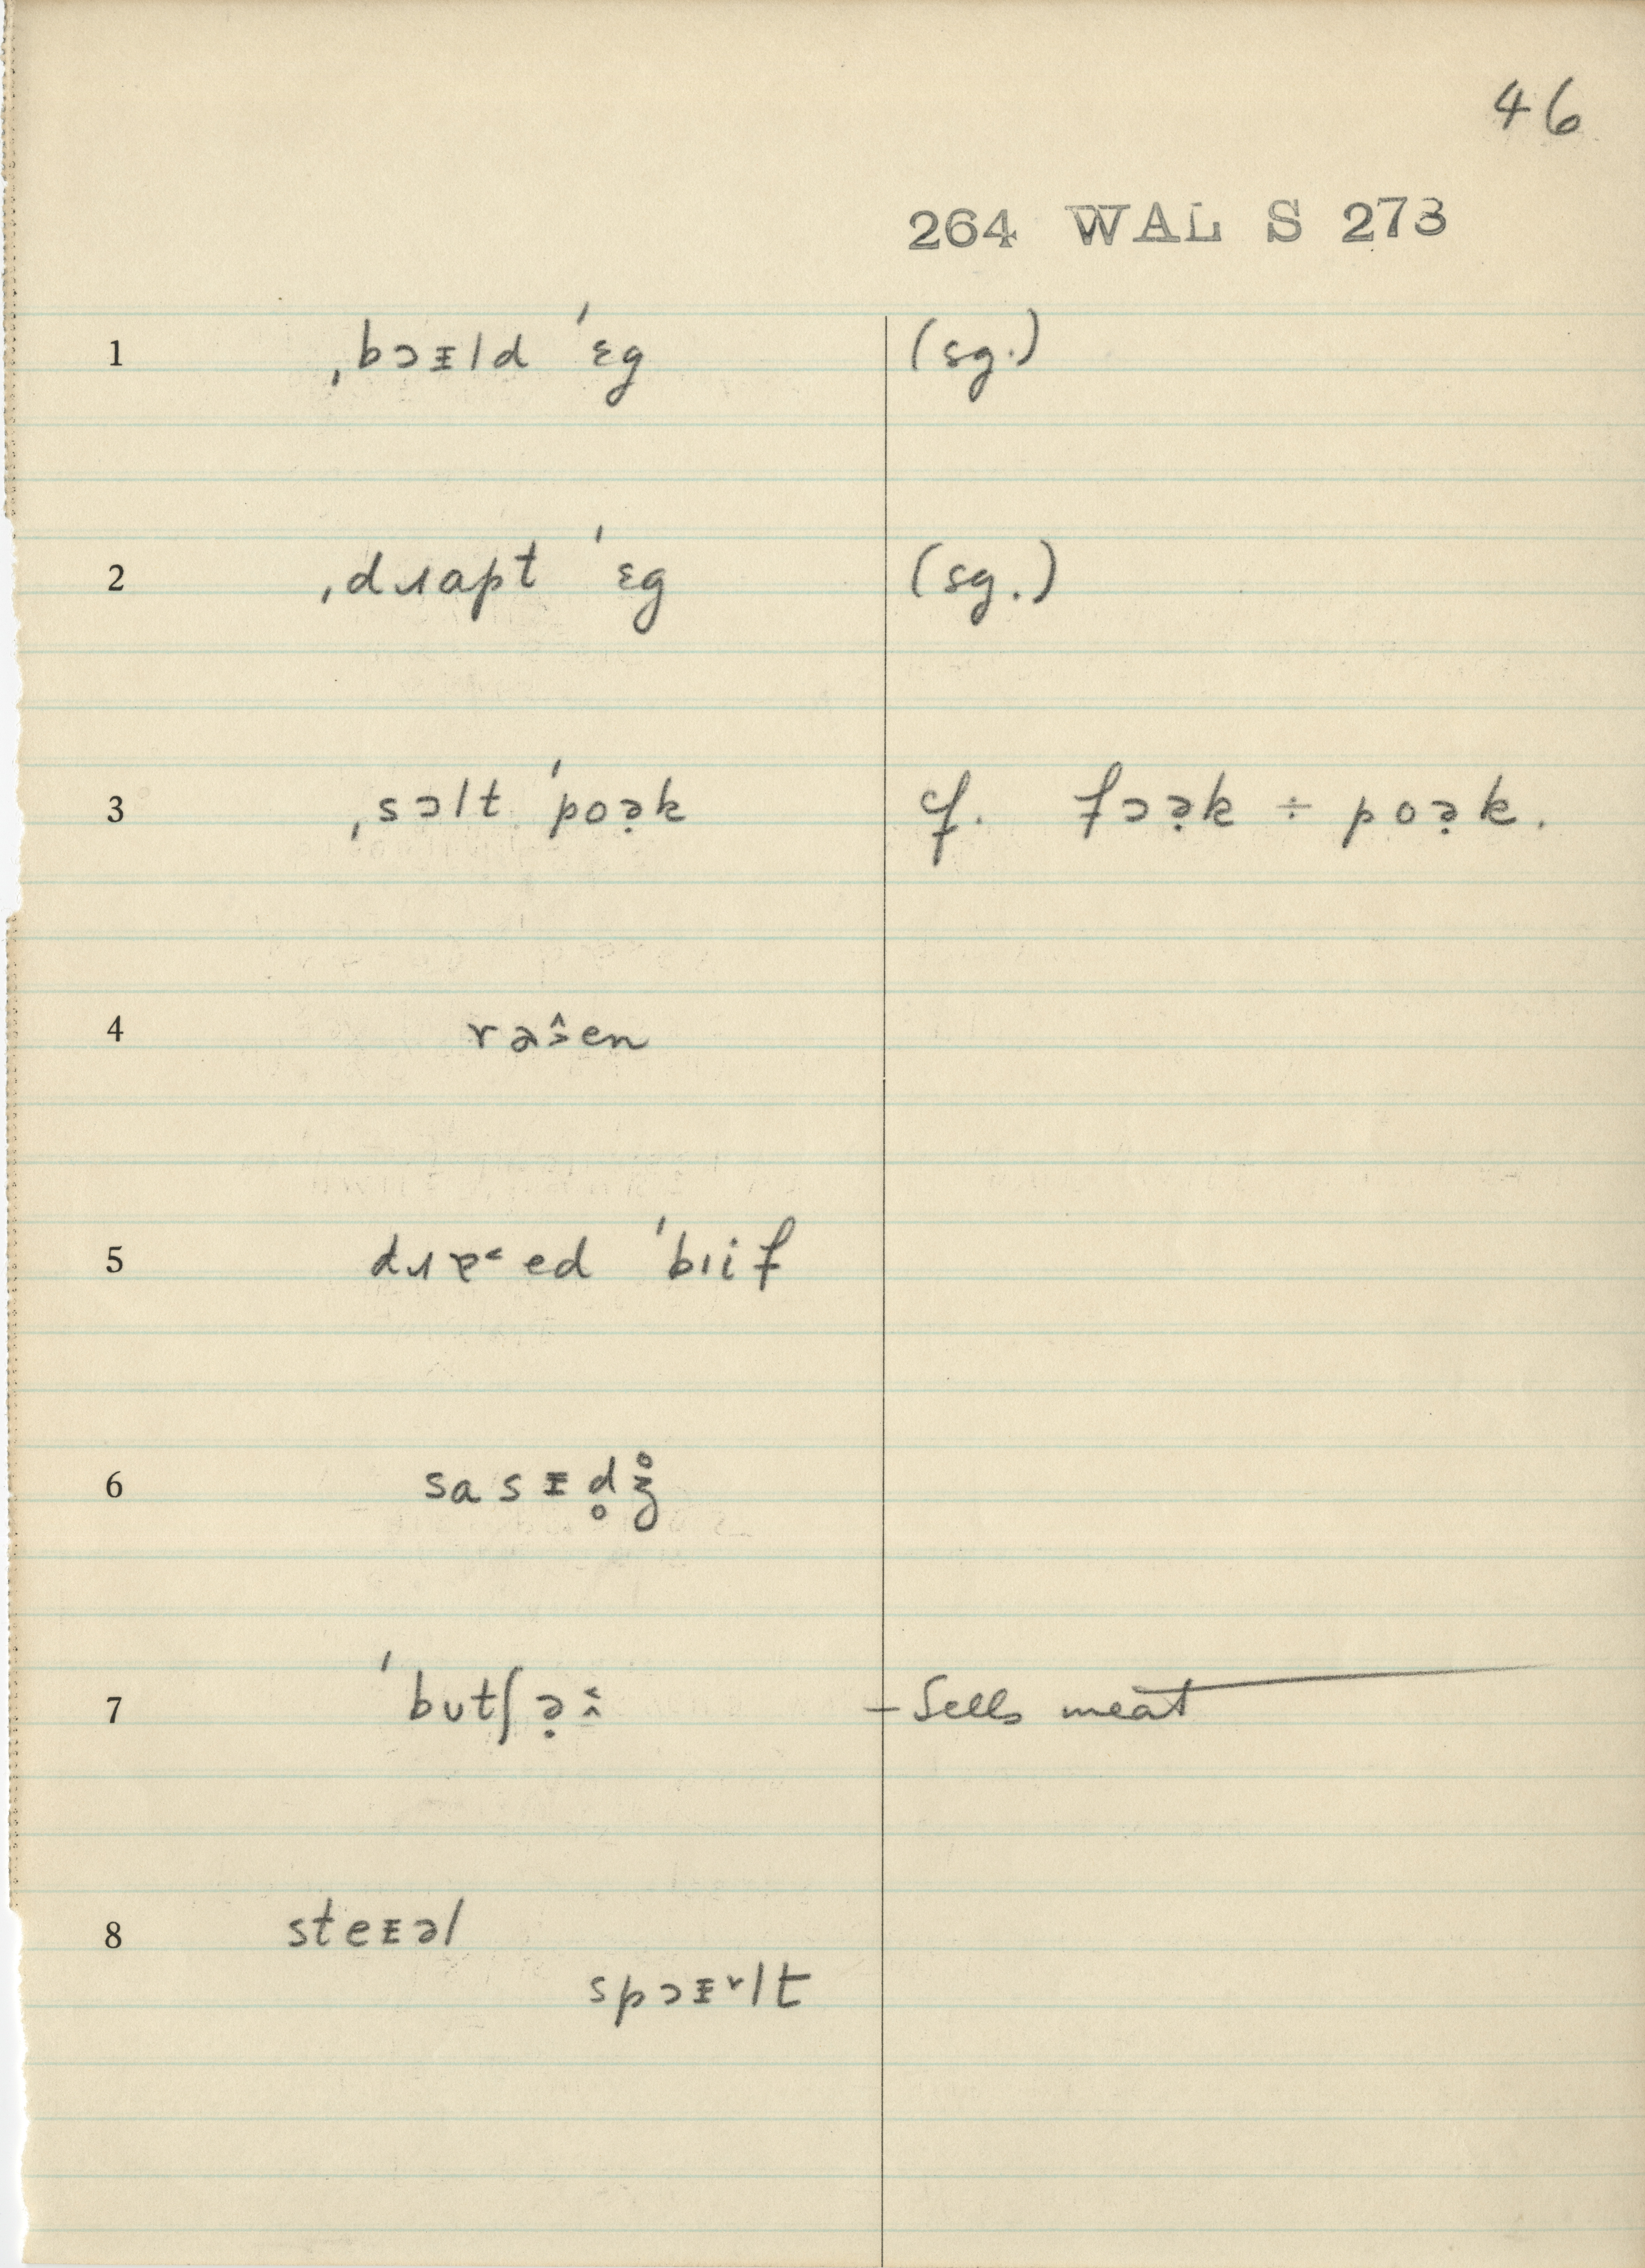 46
264 WAL S 273
1 ˌbɔᵻld ˈɛg (sg.)
2 ˌdɹapt ˈɛg (sg.)
3 ˌsɔlt ˈpoə̣k cf. fɔə̣k ÷ poə̣k.
4
5 ˈbıif
6 sasᵻd̥ʒ̊
7 ˈbʊtʃə̣ – Sells meat
8 steᵻəl
spɔᵻlt